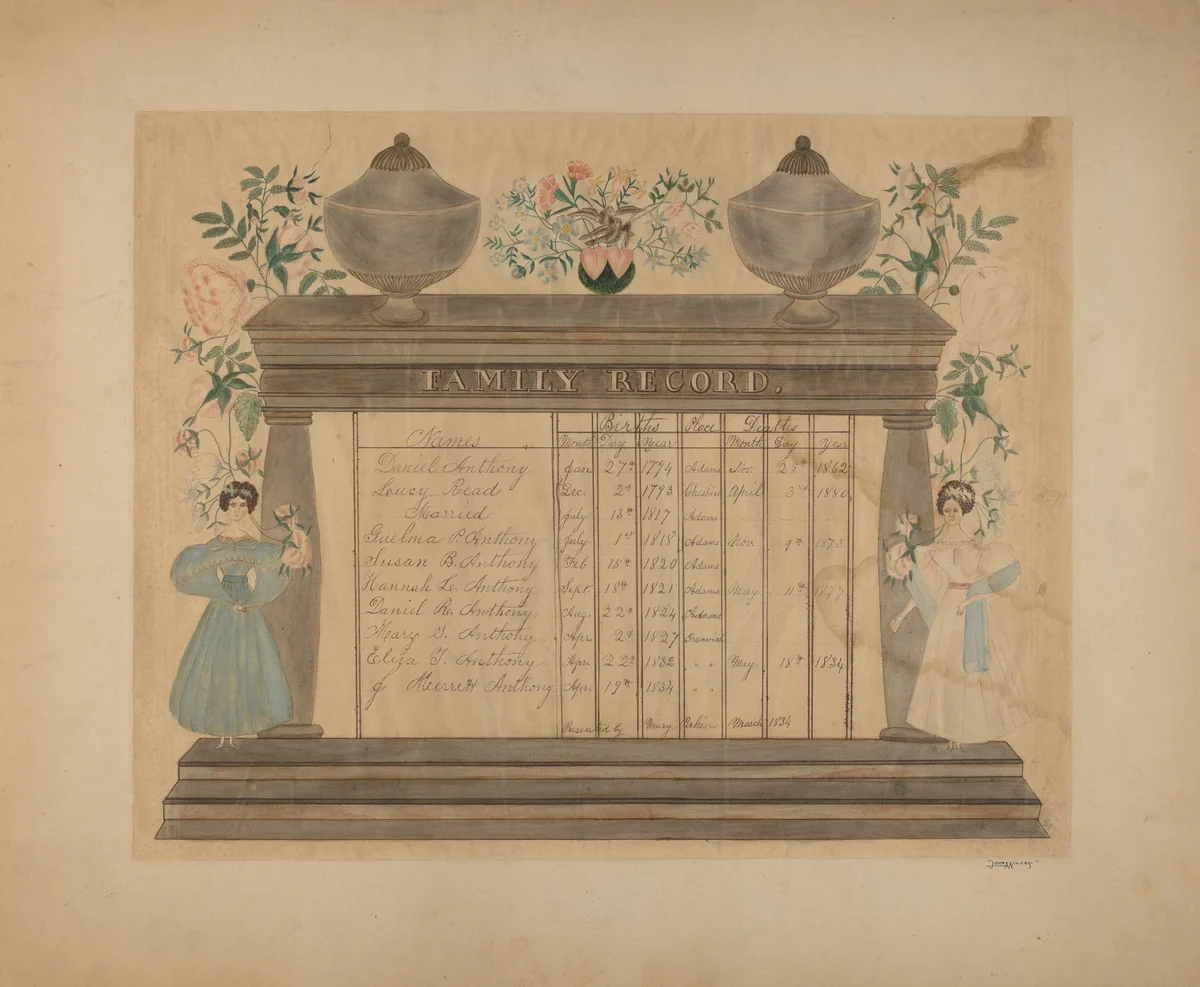 FAMILY RECORD.
Births Place Deaths
Names Month Day Year Month Day Year
Daniel Anthony Jan 27th 1794 Adams Nov. 25th 1862
Leucy Read Dec. 2d 1793 Cheshire April 3rd 1880
Married July 13th 1817 Adams
Guelma P. Anthony July 1st 1818 Adams Nov 9th 1873
Susan B. Anthony Feb 15th 1820 Adams
Hannah L. Anthony Sept. 15th 1821 Adams May 11th 1877
Daniel R. Anthony Aug. 22d 1824 Adams
Mary S. Anthony Apr. 2d 1827 Greenwich
Eliza T. Anthony Apr. 22d 1832 " " May 18th 1834
J Merritt Anthony Apr. 19th 1834 " "
Presented by Mary Perkins March 1834